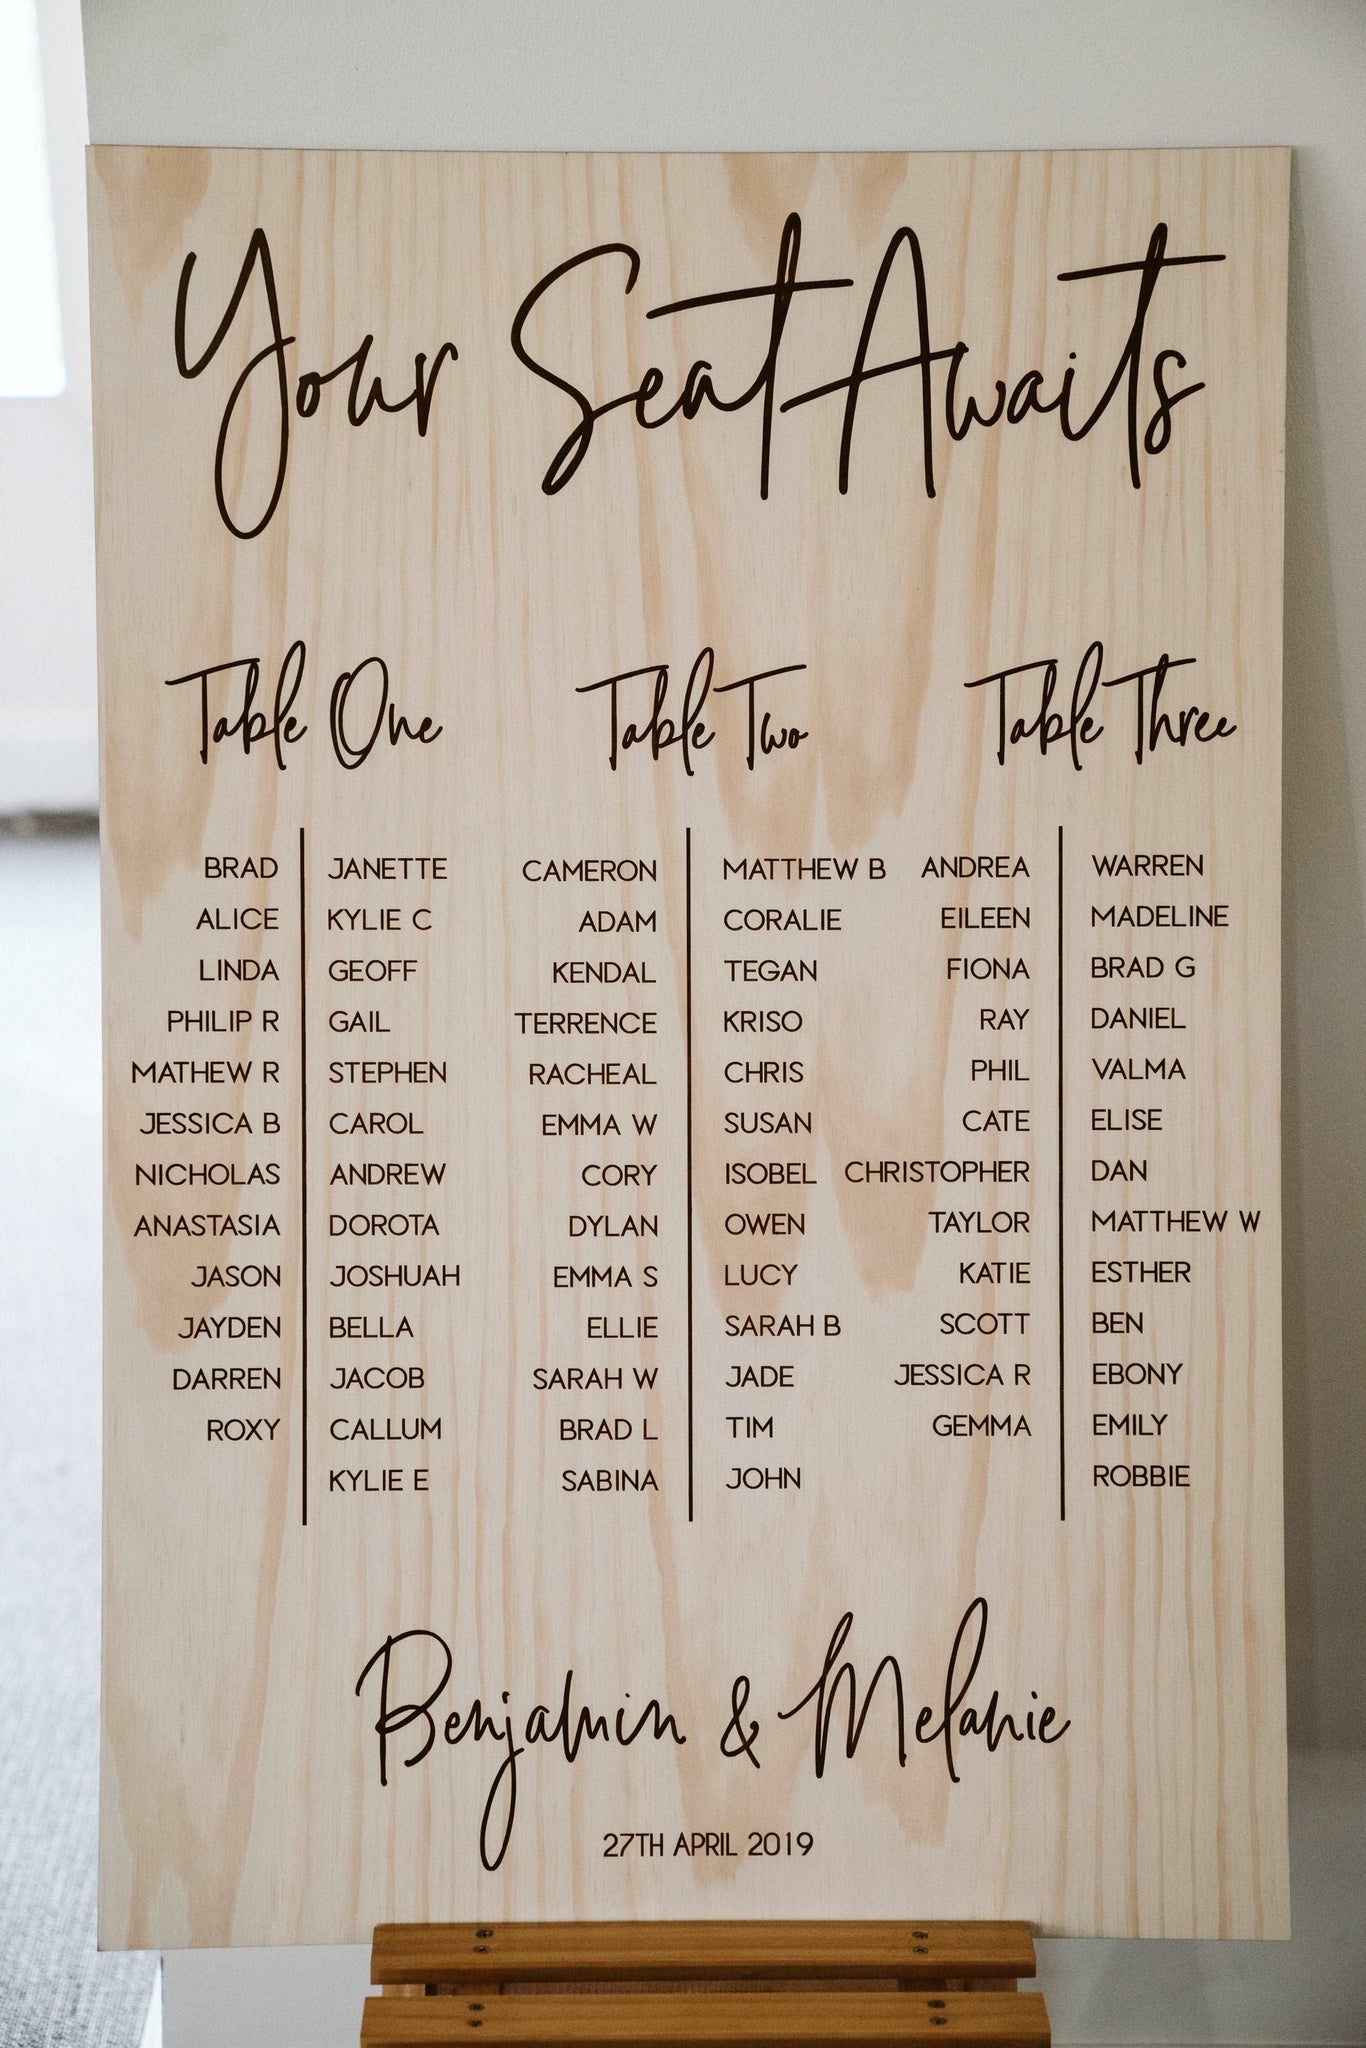 Your Seat Awaits
Table One
BRAD
ALICE
LINDA
PHILIP R
MATHEW R
JESSICA B
NICHOLAS
ANASTASIA
JASON
JAYDEN
DARREN
ROXY
JANETTE
KYLIE C
GEOFF
GAIL
STEPHEN
CAROL
ANDREW
DOROTA
JOSHUAH
BELLA
JACOB
CALLUM
KYLIE E
Table Two
CAMERON
ADAM
KENDAL
TERRENCE
RACHEAL
EMMA W
CORY
DYLAN
EMMA S
ELLIE
SARAH W
BRAD L
SABINA
MATTHEW B
CORALIE
TEGAN
KRISO
CHRIS
SUSAN
ISOBEL
OWEN
LUCY
SARAH B
JADE
TIM
JOHN
Table Three
ANDREA
EILEEN
FIONA
RAY
PHIL
CATE
CHRISTOPHER
TAYLOR
KATIE
SCOTT
JESSICA R
GEMMA
WARREN
MADELINE
BRAD G
DANIEL
VALMA
ELISE
DAN
MATTHEW W
ESTHER
BEN
EBONY
EMILY
ROBBIE
Benjamin & Melanie
27TH APRIL 2019